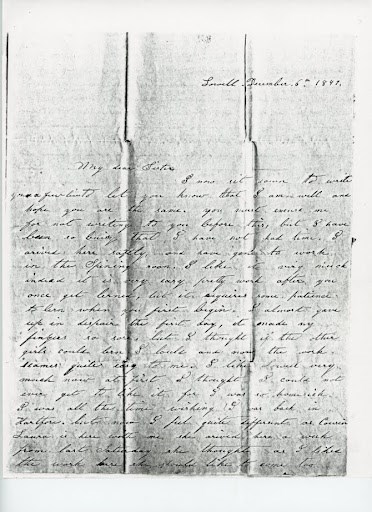 Lowell December 6th 184
My dear Sister
I now set down to write
you a few lines to let you know that I am well and
hope you are the same. you must excuse me
for not writing to you before this, but I have
been so busy that I have not had time. I
arrived here safely, and have gone to work
in the Spining room. I like it very much
indeed it is very easy pretty work after you
once get lerned, but it requires some patience
to lern when you first begin. I almost gave
up in despair the first day, it made my
fingers so sore but I thought if the other
girls could lern I could and now the work
seames quite easy to me. I like Lowell very
much now at first I thought I could not
ever get to like it for I was so homesick
I was all the time wishing I was back in
but now I feel quite different as Cousin
Laura is here with me she arived here a week
from last Saturday she thought as I liked
the work here she would like to come too